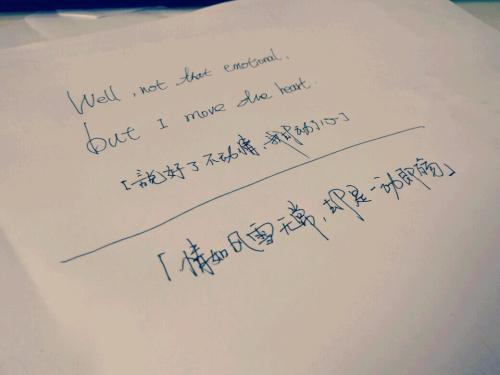 Well, not that emotional,
but I move the heart.
「說好了不动情，我却动了心」
「情如风雪无常，却是一动即伤」